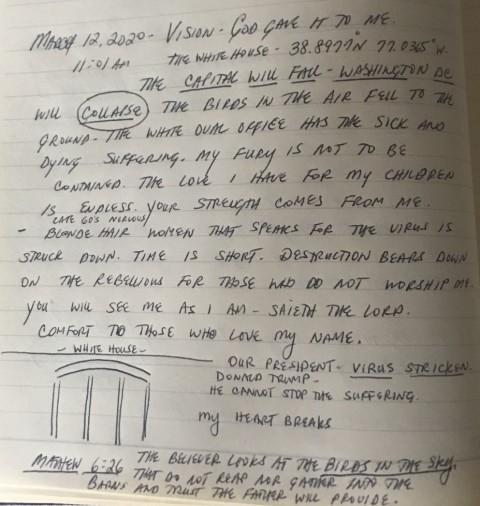 MARCH 12, 2020 - VISION - GOD GAVE IT TO ME.
11:01 AM THE WHITE HOUSE - 38.8977°N 77.0365° W.
THE CAPITAL WILL FALL - WASHINGTON DC
WILL COLLAPSE THE BIRDS IN THE AIR FELL TO THE
GROUND - THE WHITE OVAL OFFICE HAS THE SICK AND
DYING SUFFERING. MY FURY IS NOT TO BE
CONTAINED. THE LOVE I HAVE FOR MY CHILDREN
IS ENDLESS. YOUR STRENGTH COMES FROM ME.
- BLONDE HAIR WOMEN THAT SPEAKS FOR THE VIRUS IS
STRUCK DOWN. TIME IS SHORT. DESTRUCTION BEARS DOWN
ON THE REBELLIOUS FOR THOSE WHO DO NOT WORSHIP ME.
YOU WILL SEE ME AS I AM - SAIETH THE LORD.
COMFORT TO THOSE WHO LOVE MY NAME.
- WHITE HOUSE -
OUR PRESIDENT - VIRUS STRICKEN.
DONALD TRUMP -
HE CANNOT STOP THE SUFFERING.
MY HEART BREAKS
MATHEW 6:26 THE BELIEVER LOOKS AT THE BIRDS IN THE SKY.
THAT DO NOT REAP NOR GATHER INTO THE
BARNS AND TRUST THE FATHER WILL PROVIDE.